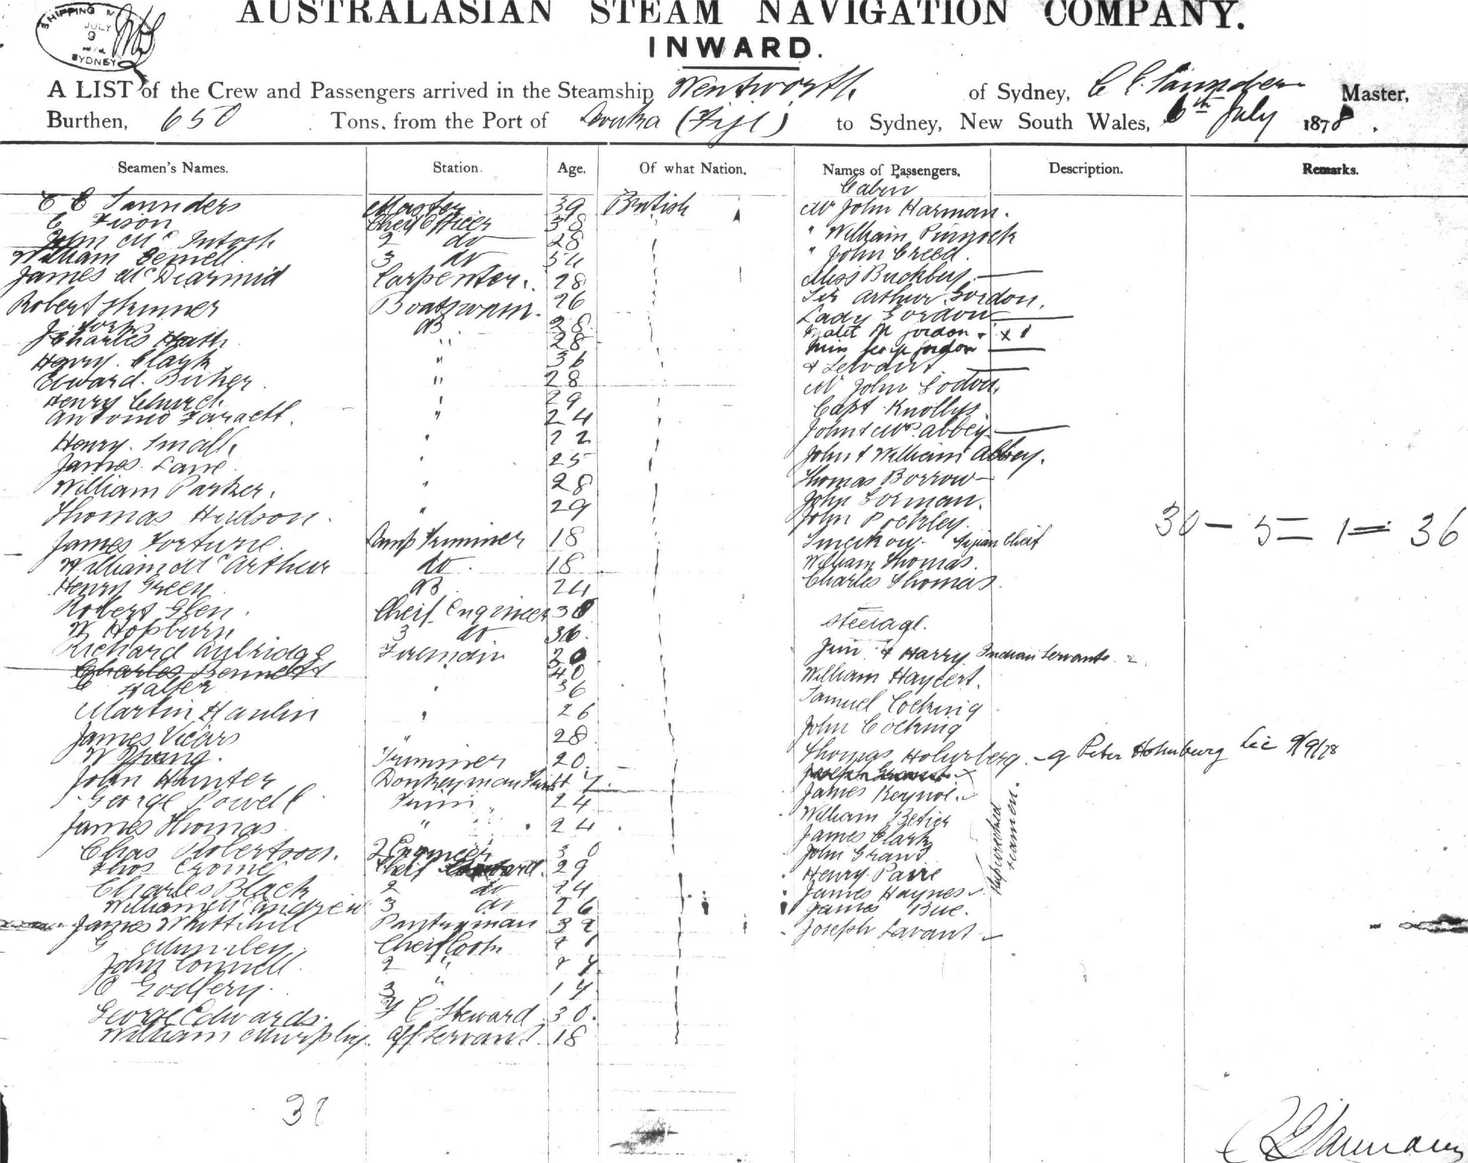 SHIPPING M
JULY
9
SYDNEY
AUSTRALASIAN STEAM NAVIGATION COMPANY.
INWARD.
A LIST of the Crew and Passengers arrived in the Steamship Wentworth of Sydney, C C Saunders Master,
Burthen, 650 Tons, from the Port of Levuka (Fiji) to Sydney, New South Wales, 6th July 1878.
Seamen's Names. Station. Age. Of what Nation. Names of Passengers, Description. Remarks.
Cabin
C C Saunders Master 39 British
C Fison Cheif Officer 38
John Mc Intosh 2 do 28
William Sewell 3 do
James McDearmid Carpenter 28
Robert Skinner Boatswain 26
J York AB 28
Charles Heath " 28
Henry Clark " 36
Edward Buker " 28
Henry Church " 29
Antonio " 24
Henry Small " 22
James Lane " 25
William Parker " 28
Thomas Hudson " 29
James Fortune Lamp Trimmer 18
William McArthur do 18
Henry Green AB 24
Robert Glen Cheif Engineer 38
W Hopburn 3 do 36
Richard Fireman
Charles Bennett 40
C Halfer " 36
Martin Hanlin " 26
James Vicars " 28
W Young Trimmer 20
John Hunter Donkeyman
George Powell Trim 24
James Thomas " " 24
Chas Robertson 2 Engineer 30
Thos Crome Cheif 29
Charles Black 2 do 24
William McAndrew 3 do 26
James Whitthill Pantryman 32
G Mumley Cheif Cook
John Connell 2 "
C Godfery 3 " 17
George Edwards F C Steward 30
William Murphy Off Servant 18
Mr John Harman
" William Pinnock
" John Creed
Miss Buckbey
Sir Arthur Gordon
Lady Gordon
gordon
gordon
& Servant
Mr John
Capt Knollys
John & Mrs Abbey
John & William Abbey
Thomas Borrow
John Gorman
John Pockley
Fijian Cheif
William Thomas
Charles Thomas
30 – 5 = 1 = 36
Steerage
Jim & Harry Indian Servants 2
William Haycert
Samuel Cocking
John Cocking
Thomas Holmberg Peter Holmburg Lic 9/9/78
James Reynol
William Betier
James Clark
John Grant
Henry Parre
James Haynes
James Bue
Joseph Savant
Shipwrecked seamen
C C Saunders